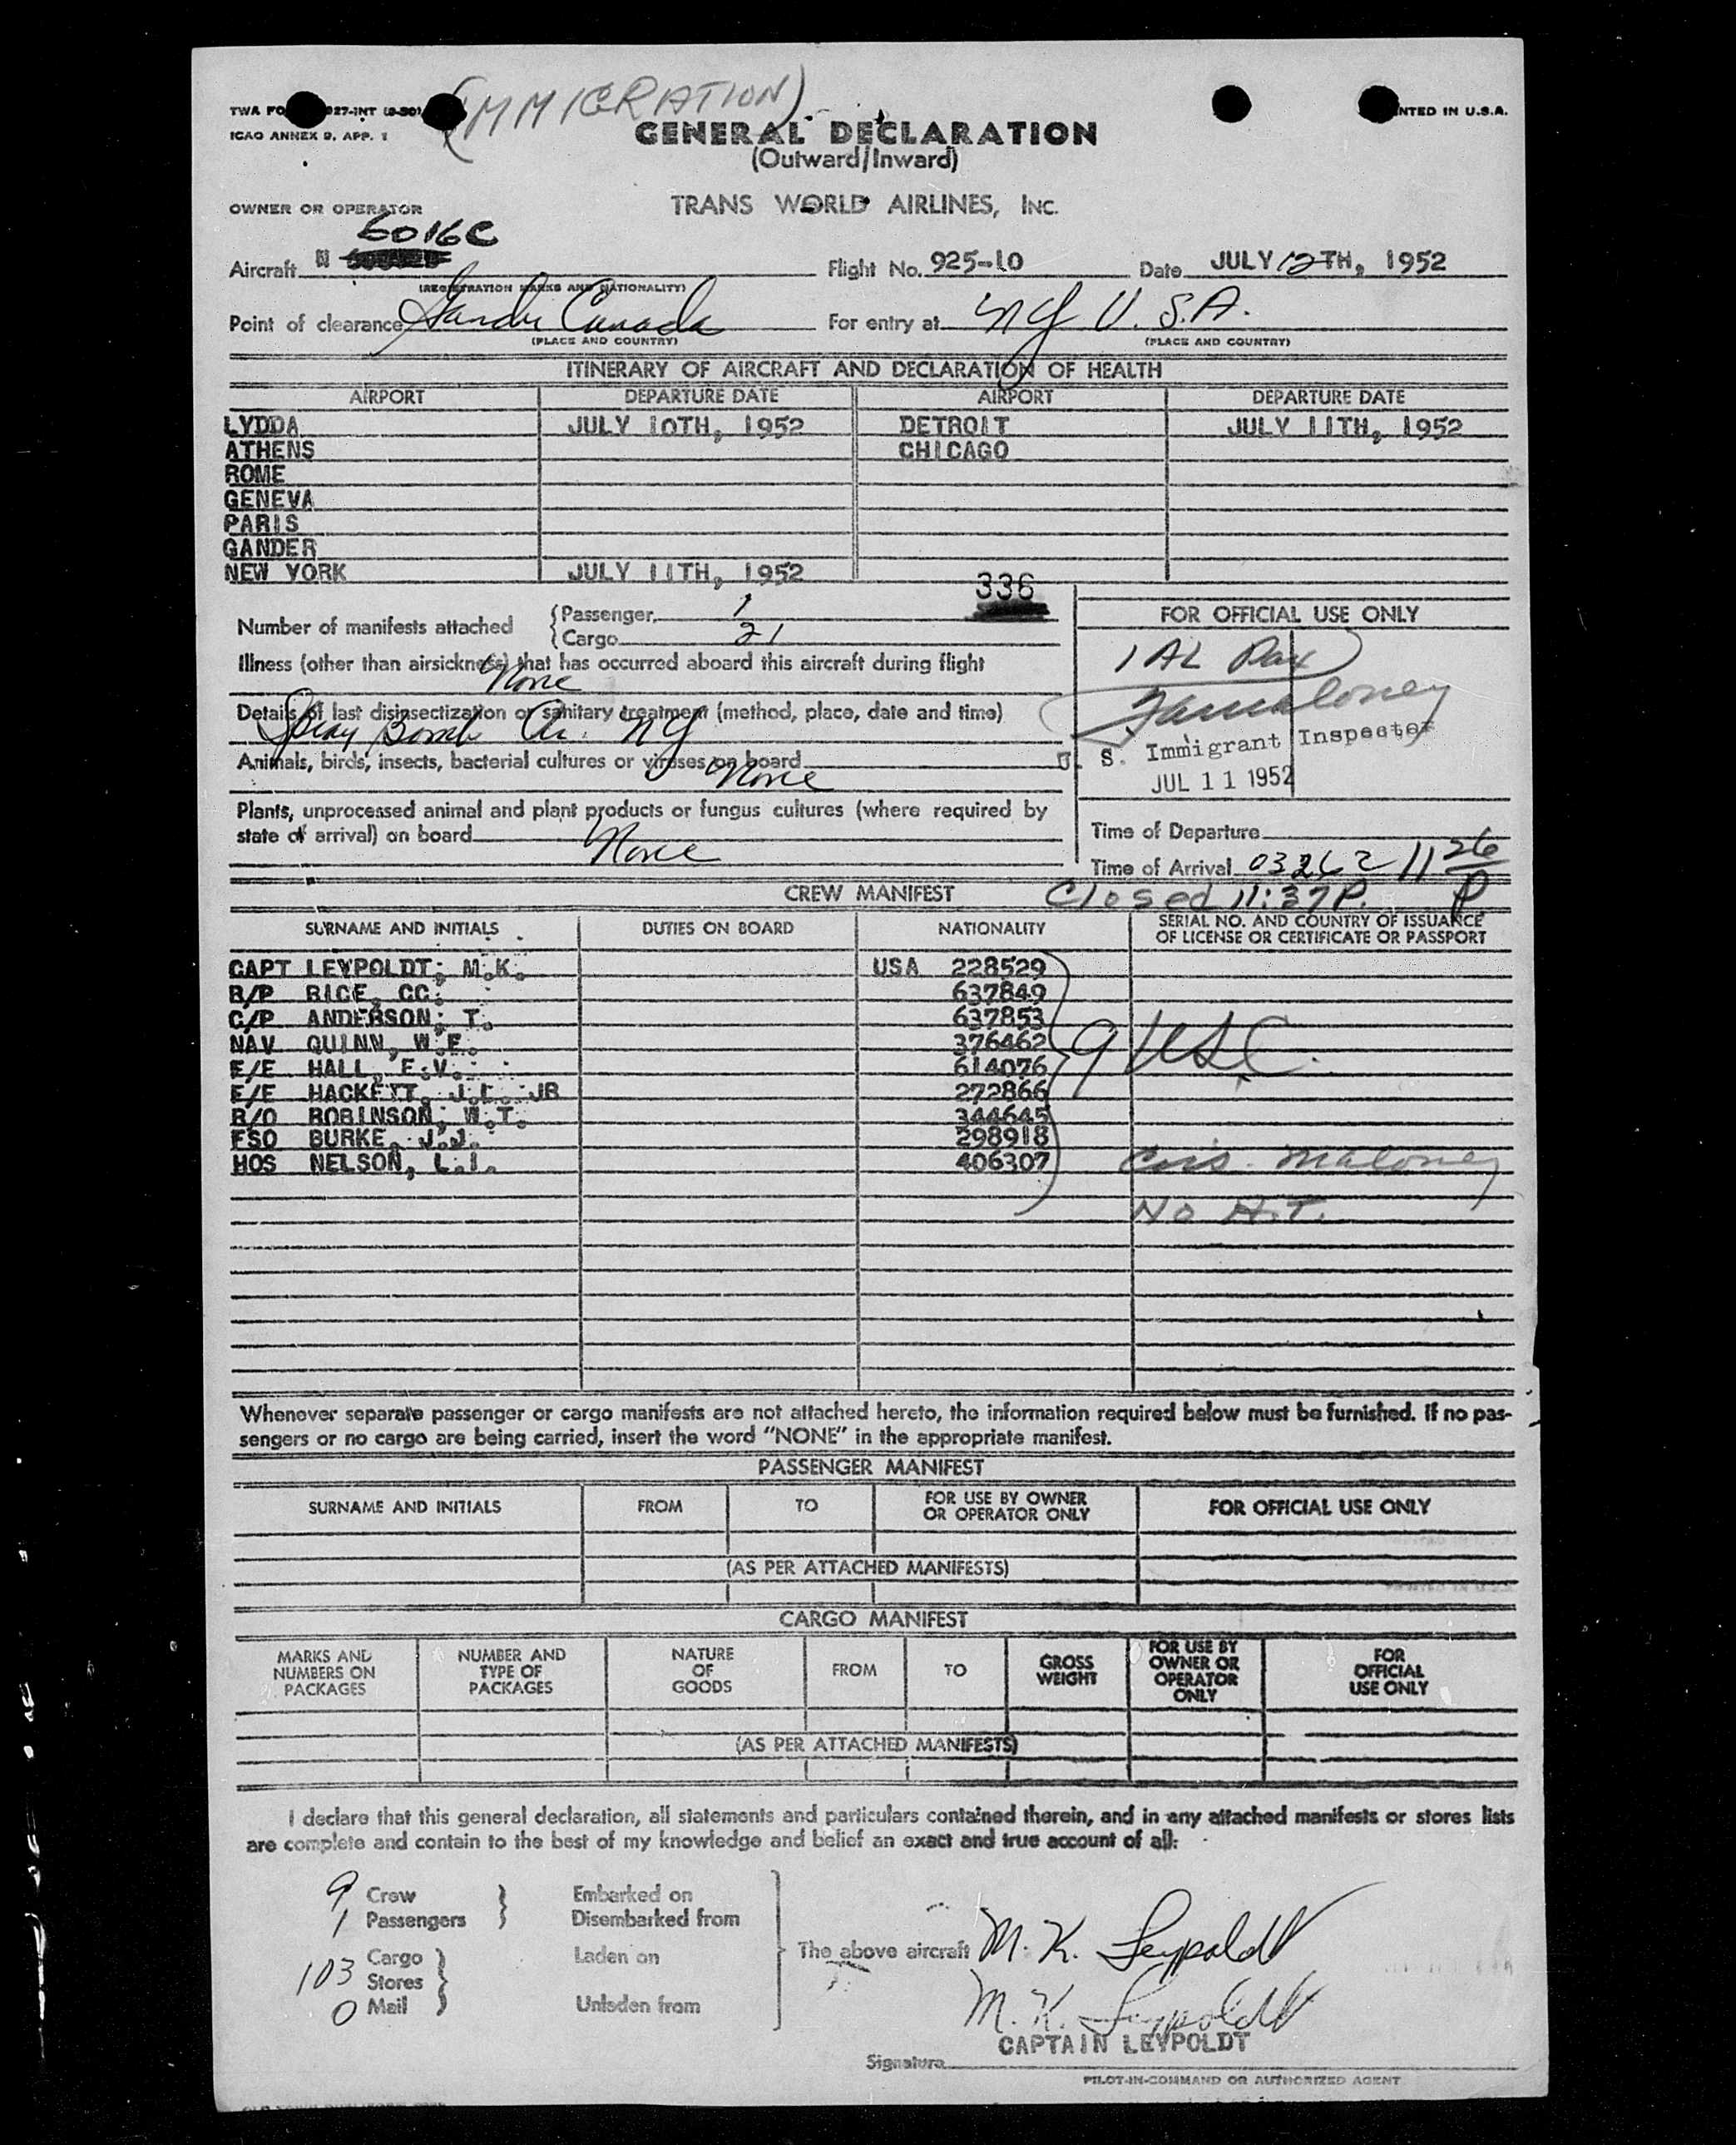 (IMMIGRATION)
TWA FO 027-INT (9-50)
NTED IN U.S.A.
ICAO ANNEX 9, APP. 1
GENERAL DECLARATION
(Outward/Inward)
OWNER OR OPERATOR
TRANS WORLD AIRLINES, INC.
6016C
Aircraft N Flight No. 925-10 Date JULY 12TH, 1952
(REGISTRATION MARKS AND NATIONALITY)
Point of clearance Gander Canada For entry at NY U.S.A.
(PLACE AND COUNTRY) (PLACE AND COUNTRY)
ITINERARY OF AIRCRAFT AND DECLARATION OF HEALTH
AIRPORT DEPARTURE DATE AIRPORT DEPARTURE DATE
LYDDA JULY 10TH, 1952 DETROIT JULY 11TH, 1952
ATHENS CHICAGO
ROME
GENEVA
PARIS
GANDER
NEW YORK JULY 11TH, 1952
336
Number of manifests attached
Passenger 1
Cargo 21
FOR OFFICIAL USE ONLY
1 AL Pax
Illness (other than airsickness) that has occurred aboard this aircraft during flight
None
Details of last disinsectization or sanitary treatment (method, place, date and time)
Spray Bomb Ar. NY
Maloney
U. S. Immigrant Inspector
JUL 11 1952
Animals, birds, insects, bacterial cultures or viruses on board
None
Plants, unprocessed animal and plant products or fungus cultures (where required by
state of arrival) on board None
Time of Departure
Time of Arrival 0326Z 11 26 P
Closed 11:37P.
CREW MANIFEST
SURNAME AND INITIALS DUTIES ON BOARD NATIONALITY SERIAL NO. AND COUNTRY OF ISSUANCE
OF LICENSE OR CERTIFICATE OR PASSPORT
CAPT LEYPOLDT, M.K. USA 228529
R/P RICE, CC. 637849
C/P ANDERSON, T. 637853
NAV QUINN, W.E. 376462
9 USC.
F/E HALL, E.V. 614076
F/E HACKETT, J.L. JR 272866
R/O ROBINSON, W.T. 344645
FSO BURKE, J.J. 298918
HOS NELSON, L.I. 406307
Cus. Maloney
No A.T.
Whenever separate passenger or cargo manifests are not attached hereto, the information required below must be furnished. If no pas-
sengers or no cargo are being carried, insert the word "NONE" in the appropriate manifest.
PASSENGER MANIFEST
SURNAME AND INITIALS FROM TO FOR USE BY OWNER OR OPERATOR ONLY FOR OFFICIAL USE ONLY
(AS PER ATTACHED MANIFESTS)
CARGO MANIFEST
MARKS AND NUMBERS ON PACKAGES NUMBER AND TYPE OF PACKAGES NATURE OF GOODS FROM TO GROSS WEIGHT FOR USE BY OWNER OR OPERATOR ONLY FOR OFFICIAL USE ONLY
(AS PER ATTACHED MANIFESTS)
I declare that this general declaration, all statements and particulars contained therein, and in any attached manifests or stores lists
are complete and contain to the best of my knowledge and belief an exact and true account of all:
9 Crew Embarked on
1 Passengers Disembarked from
103 Cargo Laden on The above aircraft M. K. Leypoldt
Stores
0 Mail Unladen from
M. K. Leypoldt
CAPTAIN LEYPOLDT
Signature
PILOT-IN-COMMAND OR AUTHORIZED AGENT